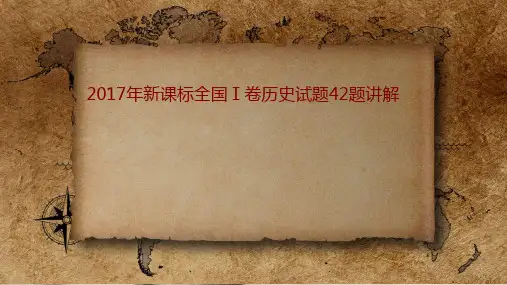 2017年新课标全国Ⅰ卷历史试题42题讲解